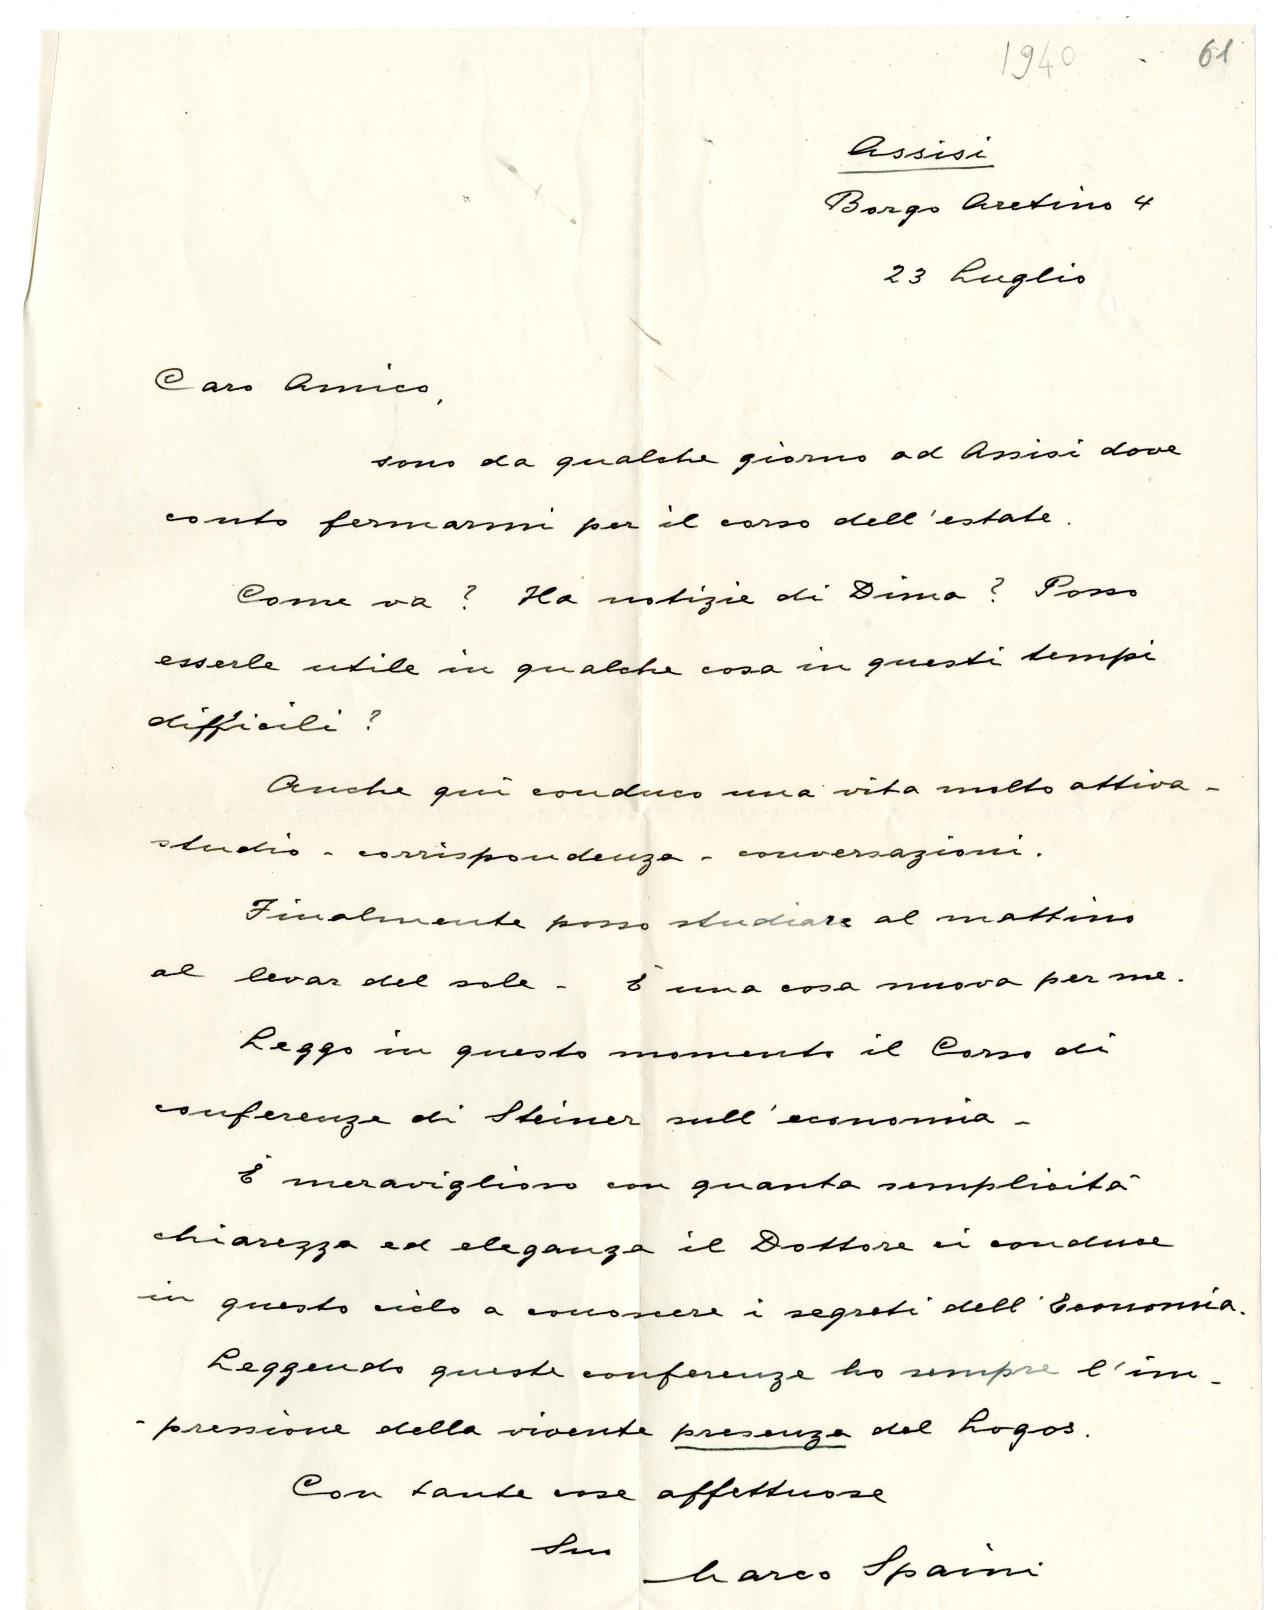 1940
61
Assisi
Borgo Aretino 4
23 Luglio
Caro Amico,
sono da qualche giorno ad Assisi dove
conto fermarmi per il corso dell'estate.
Come va? Ha notizie di Dima? Posso
esserle utile in qualche cosa in questi tempi
difficili?
Anche qui conduco una vita molto attiva -
studio - corrispondenza - conversazioni.
Finalmente posso studiare al mattino
al levar del sole - È una cosa nuova per me.
Leggo in questo momento il Corso di
conferenze di Steiner sull'economia -
È meraviglioso con quanta semplicità
chiarezza ed eleganza il Dottore ci conduce
in questo ciclo a conoscere i segreti dell'Economia.
Leggendo queste conferenze ho sempre l'im-
-pressione della vivente presenza del Logos.
Con tante cose affettuose
Suo
Marco Spaini